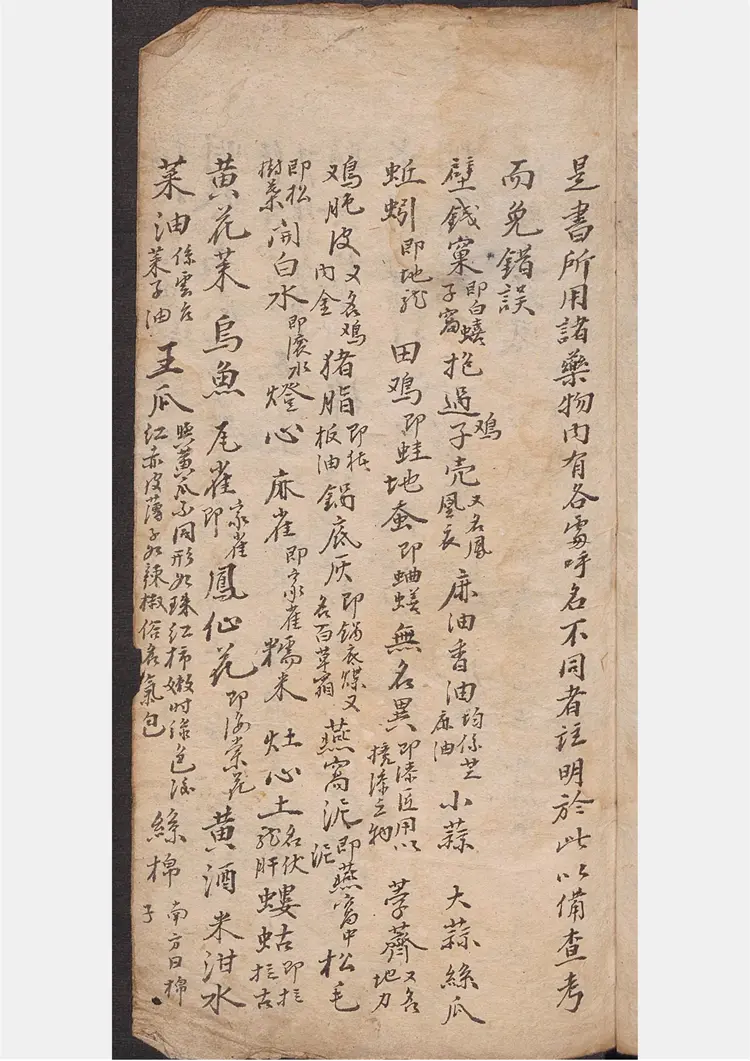 是書所用諸藥物內有各處呼名不同者註明於此以備查考
而免錯誤
壁錢窠即白蟢子窩抱過雞子壳又名鳳凰衣麻油香油均係芝麻油小蒜大蒜絲瓜
蚯蚓即地龍田鸡即蛙地蚕即蛐蟮無名異即漆匠用以攪漆之物荸薺又名地力
鸡肫皮又名鸡內金猪脂即猪板油鍋底灰即鍋底煤又名百草霜燕窩泥即燕窩中泥松毛
即松樹葉開白水即滾水燈心麻雀即家雀糯米灶心土名伏龍肝螻蛄即拉拉古
黄花菜烏魚尾雀即家雀鳳仙花即海棠花黄酒米泔水
菜油係雲台菜子油王瓜照黄瓜不同形如珠红柿嫩时绿色後红赤皮薄子如辣椒俗名氣包絲棉南方曰棉子